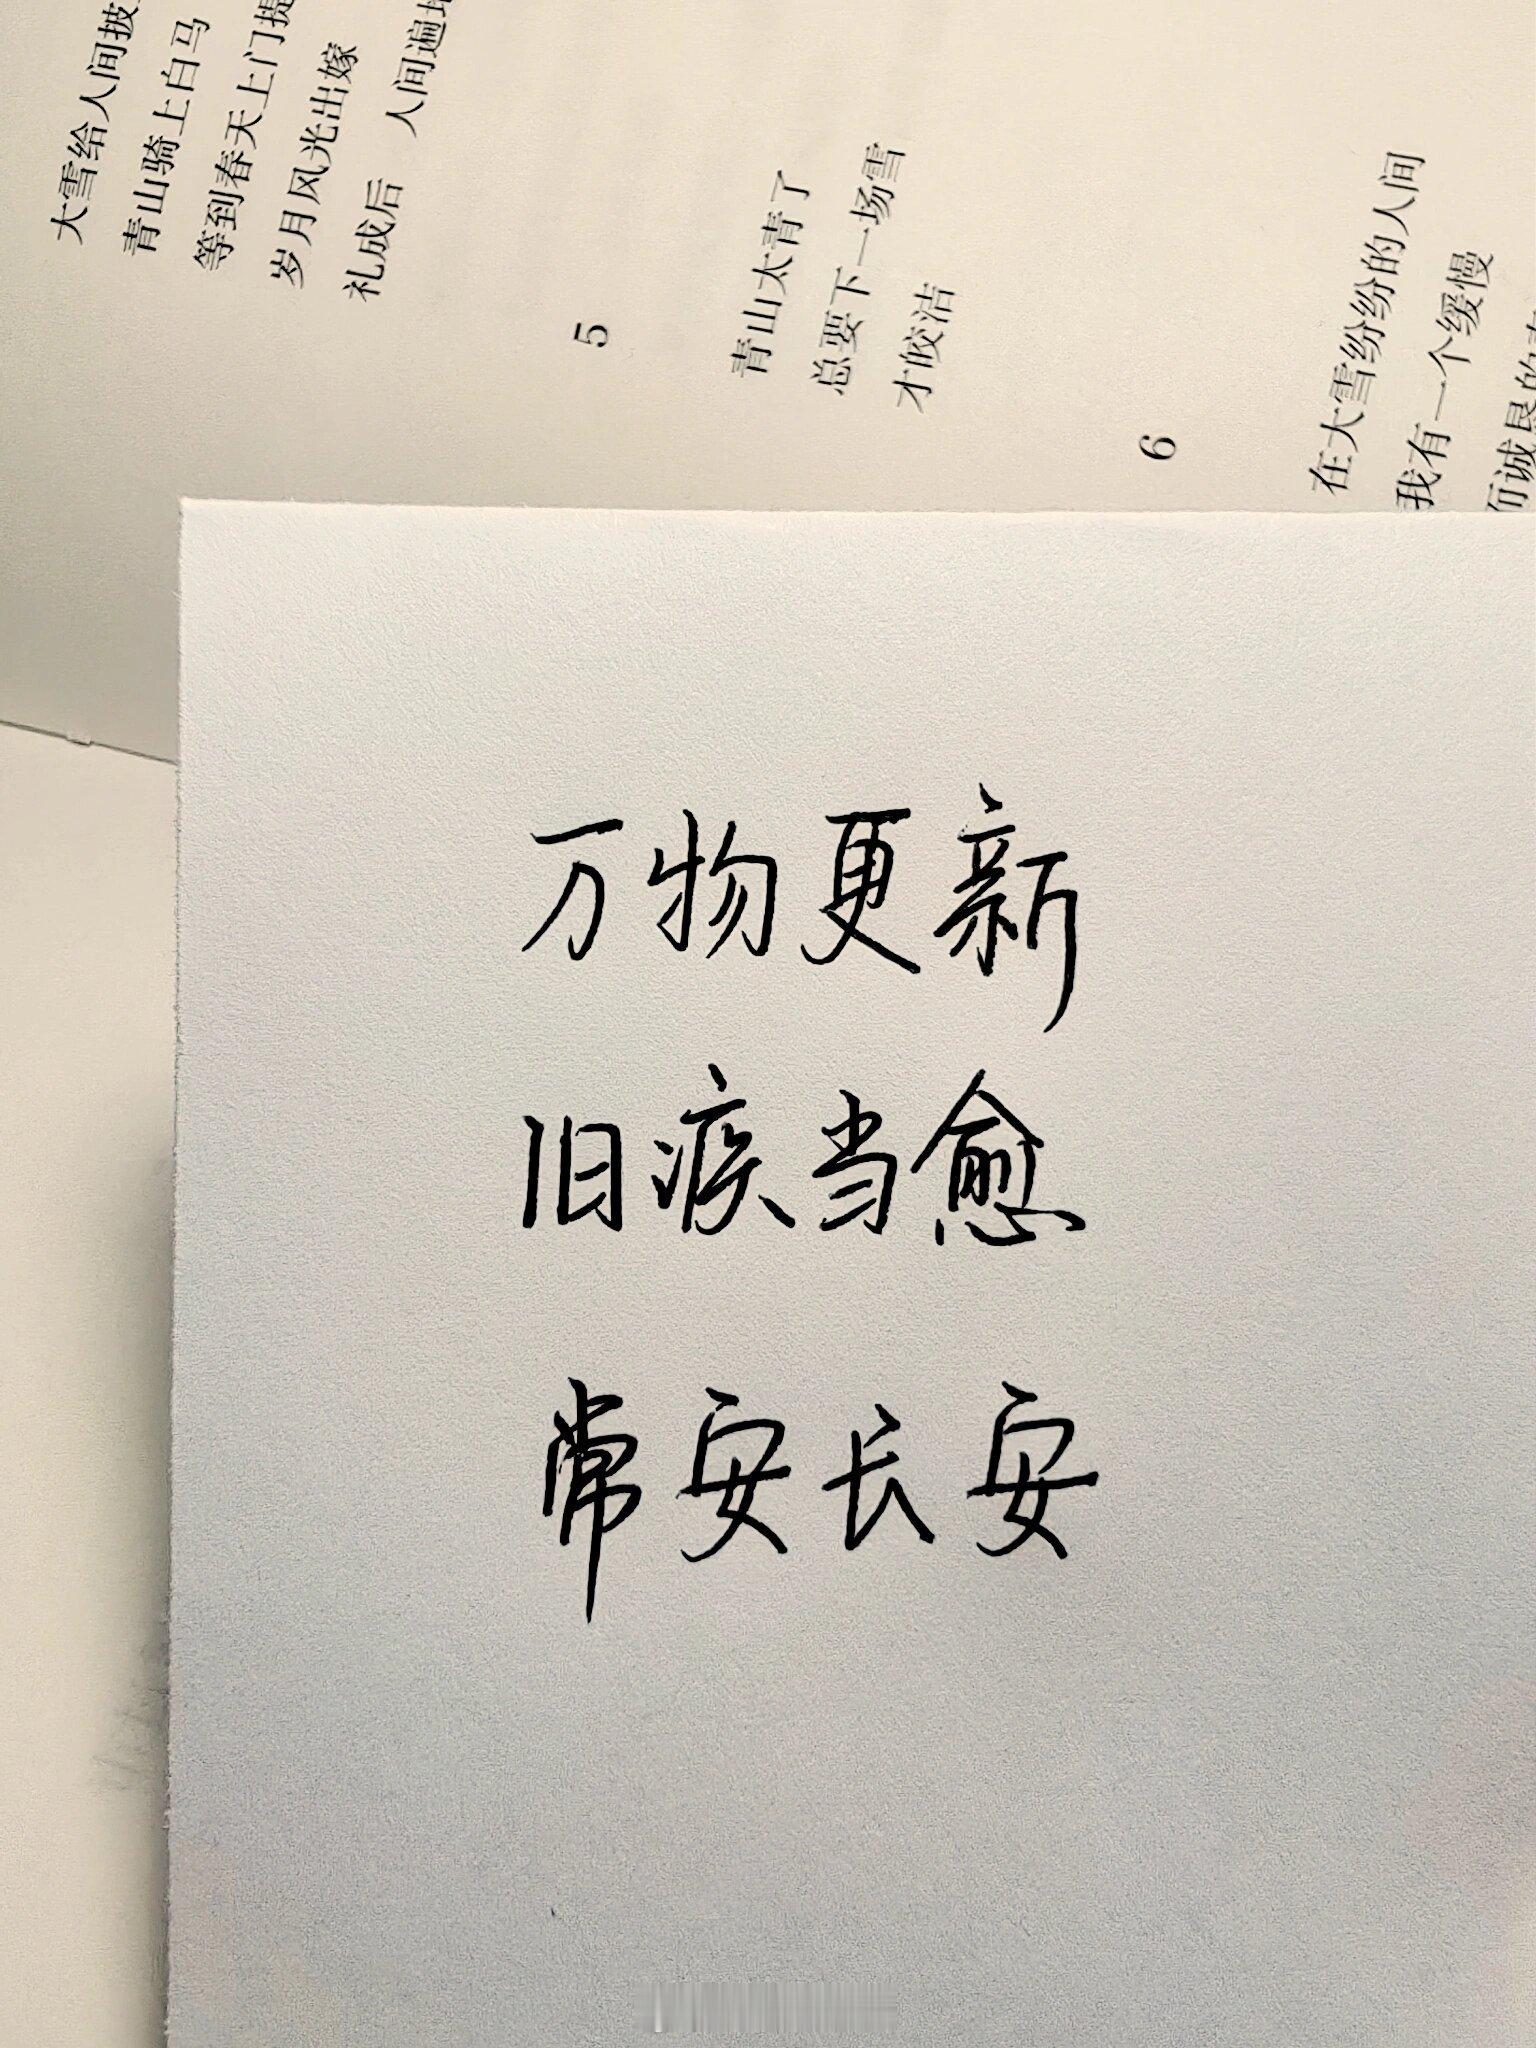 大雪给人间披
青山骑上白马
等到春天上门提
岁月风光出嫁
礼成后 人间遍地
5
青山太青了
总要下一场雪
才皎洁
6
在大雪纷纷的人间
我有一个缓慢
而诚恳的春
万物更新
旧疾当愈
常安长安